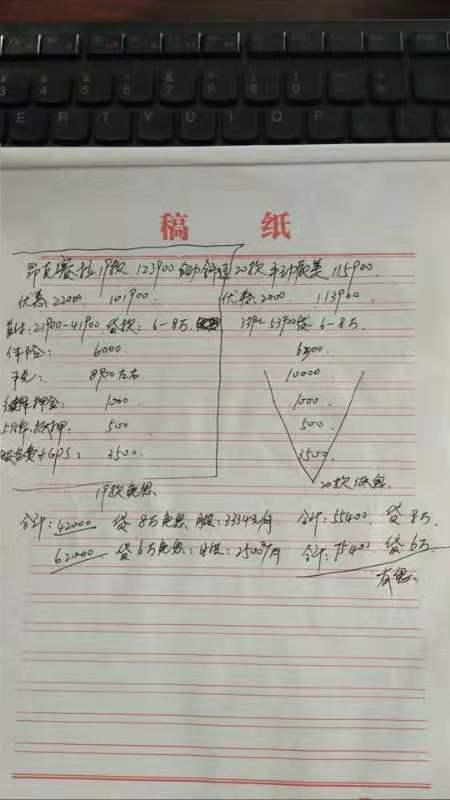 稿 纸
昂克赛拉19款 123900 自动舒适 20款 手动最美 115900
优惠 22000 101900. 优惠 2000 113900
首付:21900-41900 贷款:6-8万. 339 53900贷 6-8万
保险: 6000 6500
税: 8900左右 10000
续保押金: 1000 1000
上牌.抵押. 500 500
服务费+GPS: 3500. 3500
19款免息 20款低息.
合计:42000 贷 8万免息 月供:3334元/月 合计:55400 贷 8万.
62000 贷 6万免息:月供:2500/月 合计:75400 贷 6万
有息.